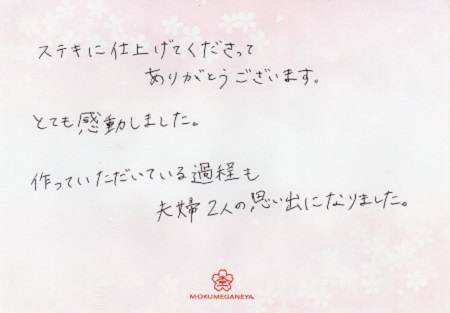 ステキに仕上げてくださって
ありがとうございます。
とても感動しました。
作っていただいている過程も
夫婦2人の思い出になりました。
MOKUMEGANEYA